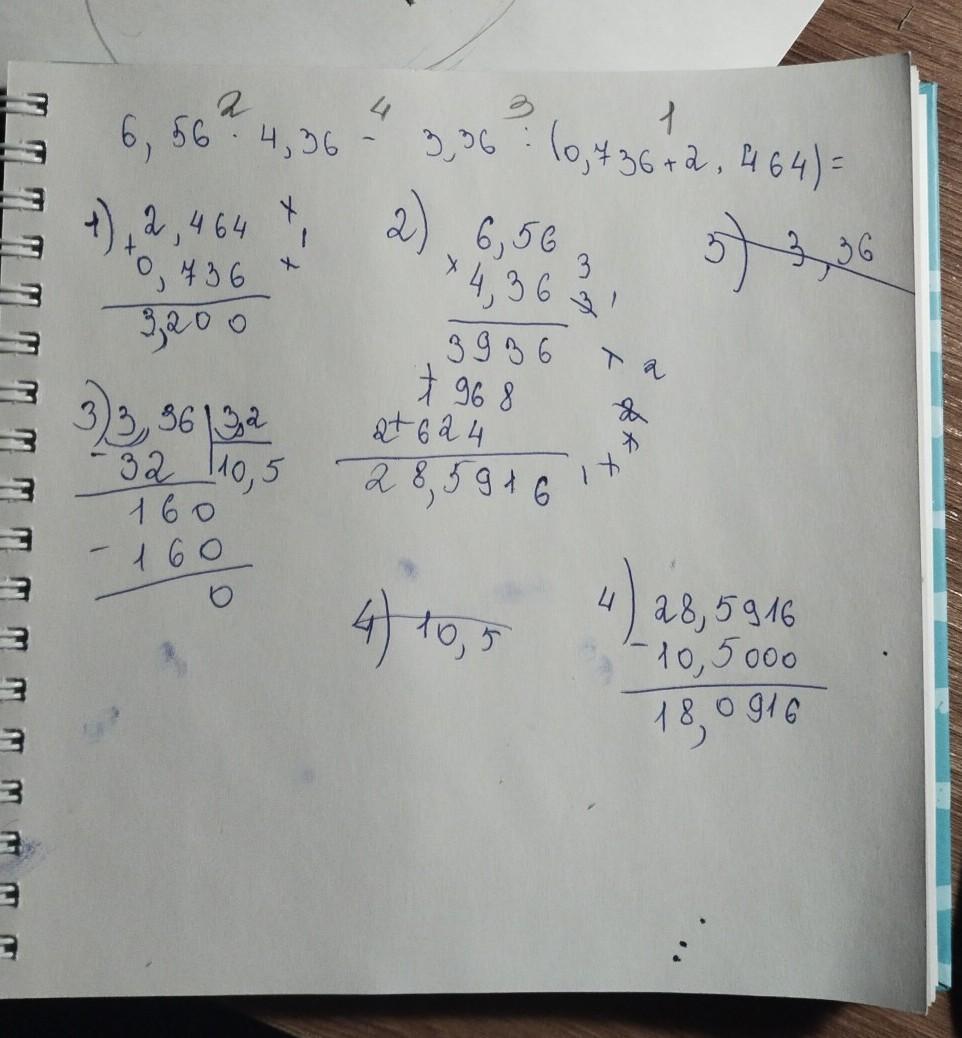 2 4 3 1
6,56 · 4,36 - 3,36 : (0,736 + 2,464) =
1) 2,464
+ 0,736
3,200
2) 6,56
× 4,36
3936
+ 1968
2624
28,5916
3) 3,36
3) 3,36 | 3,2
- 32 | 10,5
160
- 160
0
4) 10,5
4) 28,5916
- 10,5000
18,0916